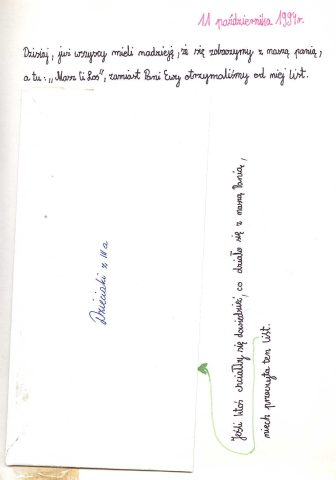 11 października 1994r.
Dzisiaj, już wszyscy mieli nadzieję, że się zobaczymy z naszą panią,
a tu: „Masz Ci Los", zamiast Pani Ewy otrzymaliśmy od niej list.
Dzieciaki z III a
Jeśli ktoś chciałby się dowiedzieć, co działo się z naszą Panią,
niech przeczyta ten list.